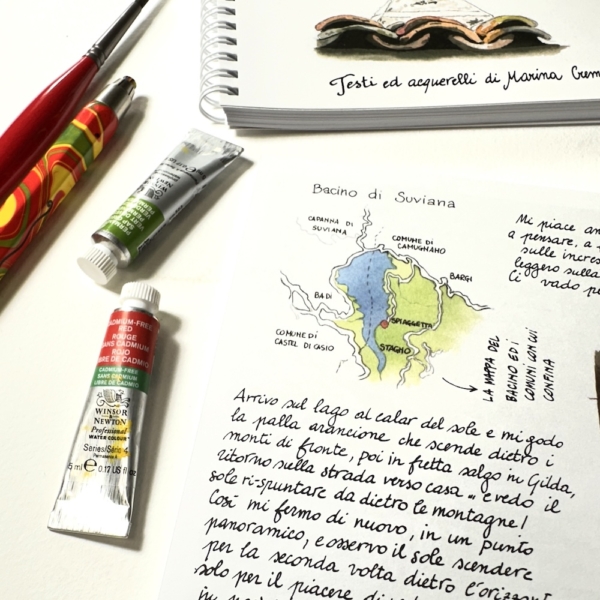 Testi ed acquerelli di Marina
Bacino di Suviana
CAPANNA DI
SUVIANA
COMUNE DI
CAMUGNANO
BARGI
BADI
SPIAGGETTA
STAGNO
COMUNE DI
CASTEL DI CASIO
LA MAPPA DEL
BACINO ED I
COMUNI CON CUI
CONFINA
Mi piace
a pensare, a
sulle
leggero sulla
Ci vado
Arrivo sul lago al calar del sole e mi godo
la palla arancione che scende dietro i
monti di fronte, poi in fretta salgo in Gilda,
ritorno sulla strada verso casa... e vedo il
sole ri-spuntare da dietro le montagne!
Così mi fermo di nuovo, in un punto
panoramico, e osservo il sole scendere
per la seconda volta dietro
solo per il piacere di
PERMANENT
SAP GREEN
CADMIUM-FREE
RED
ROUGE
SANS CADMIUM
ROJO
LIBRE DE CADMIO
CADMIUM-FREE
SANS CADMIUM
LIBRE DE CADMIO
WINSOR
& NEWTON
Professional
WATER COLOUR
Series/Série 4
5 ml e 0.17 US fl oz